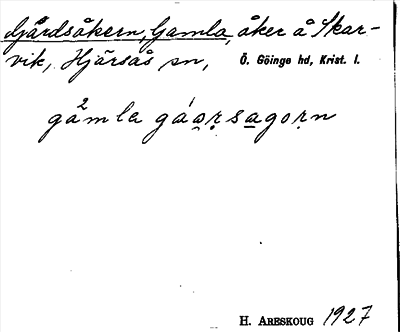 Gårdsåkern, Gamla, åker å Skar-
vik, Hjärsås sn, Ö. Göinge hd, Krist. l.
H. ARESKOUG 1927